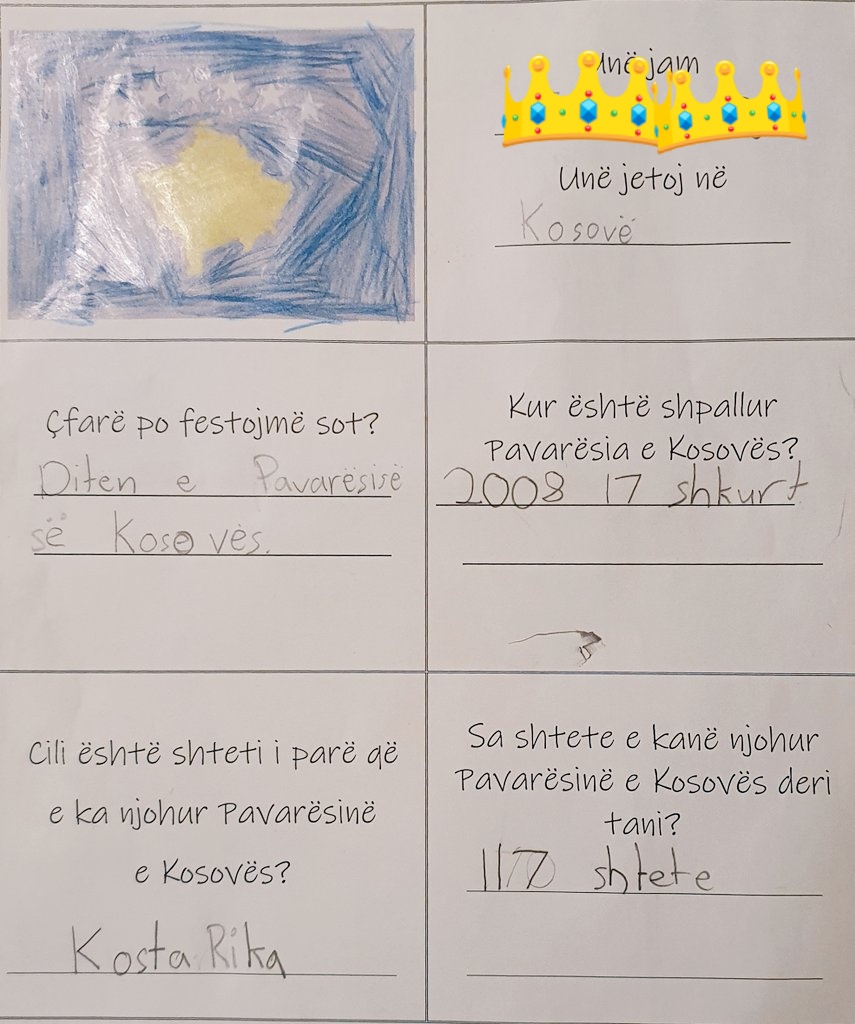 Unë jam
Unë jetoj në
Kosovë
Çfarë po festojmë sot?
Diten e Pavarësisë
së Kosovës.
Kur është shpallur
Pavarësia e Kosovës?
2008 17 shkurt
Cili është shteti i parë që
e ka njohur Pavarësinë
e Kosovës?
Kosta Rika
Sa shtete e kanë njohur
Pavarësinë e Kosovës deri
tani?
117 shtete